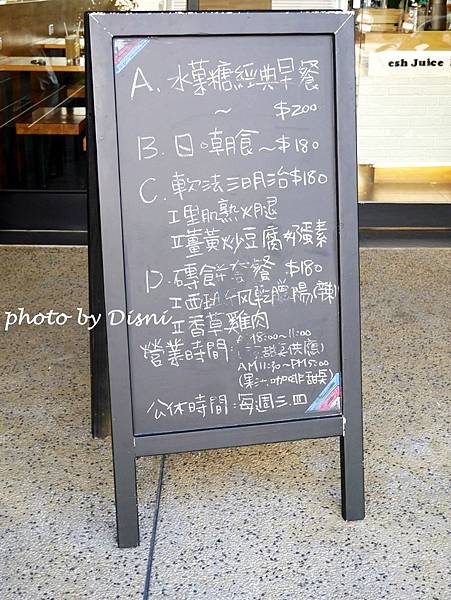 esh Juice
A. 水菓糖經典早餐
~ $200
B. 日。朝食~$180
C. 軟法三明治$180
I里肌熟火腿
II薑黃炒豆腐
D. 磚餅套餐 $180
I西班牙風乾臘腸(辣)
II香草雞肉
photo by Disni
營業時間:
8:00~11:00
AM11:30~PM5:00
(果汁.咖啡.甜點)
公休時間:每週三.四